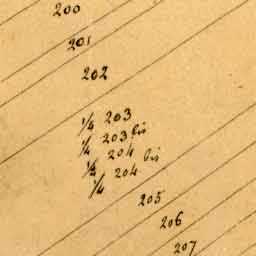 200
201
202
1/4 203
1/4 203 bis
1/4 204
1/4 204 bis
205
206
207